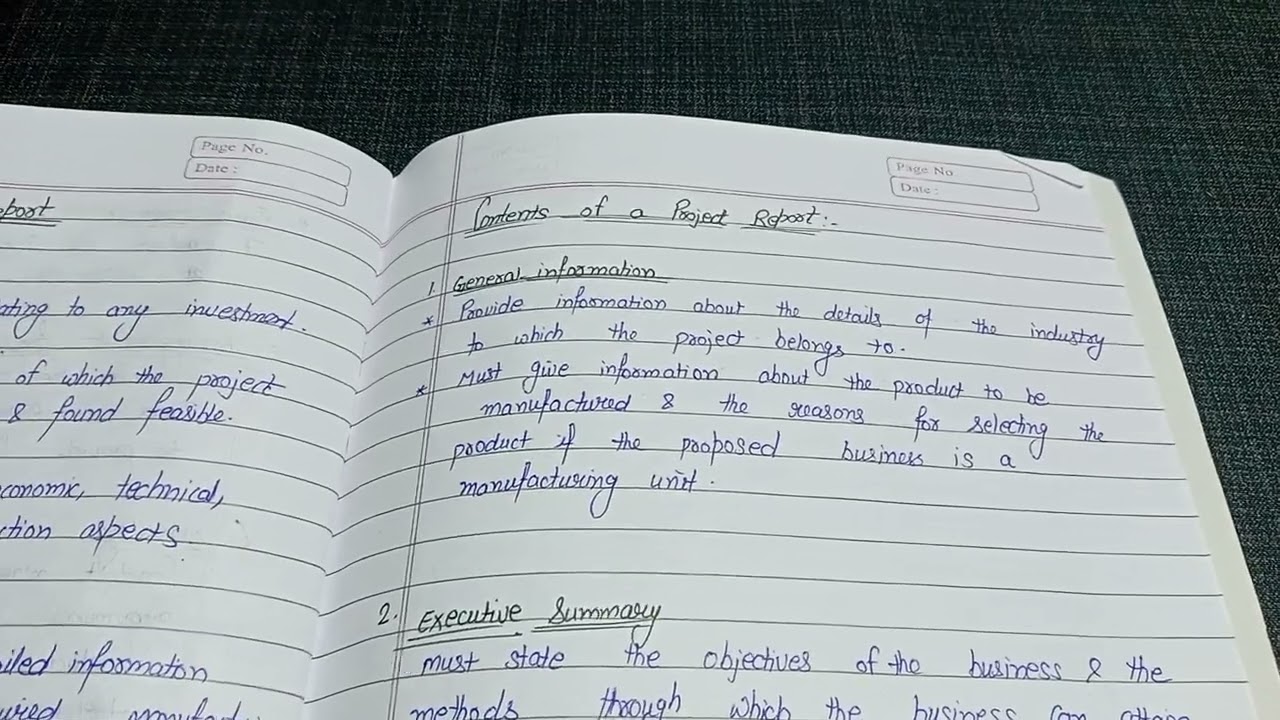 Page No.
Date :
port
ating to any investment.
of which the project
& found feasible.
conomic, technical,
ction aspects.
iled information
Page No
Date :
Contents of a Project Report:-
1. General information
* Provide information about the details of the industry
to which the project belongs to.
* Must give information about the product to be
manufactured & the reasons for selecting the
product if the proposed business is a
manufacturing unit.
2. Executive Summary
must state the objectives of the business & the
methods through which the business can